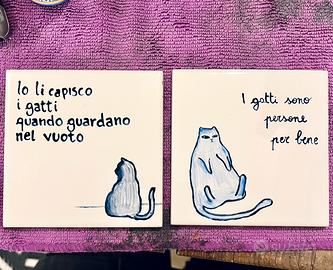 Io li capisco
i gatti
quando guardano
nel vuoto
I gatti sono
persone
per bene